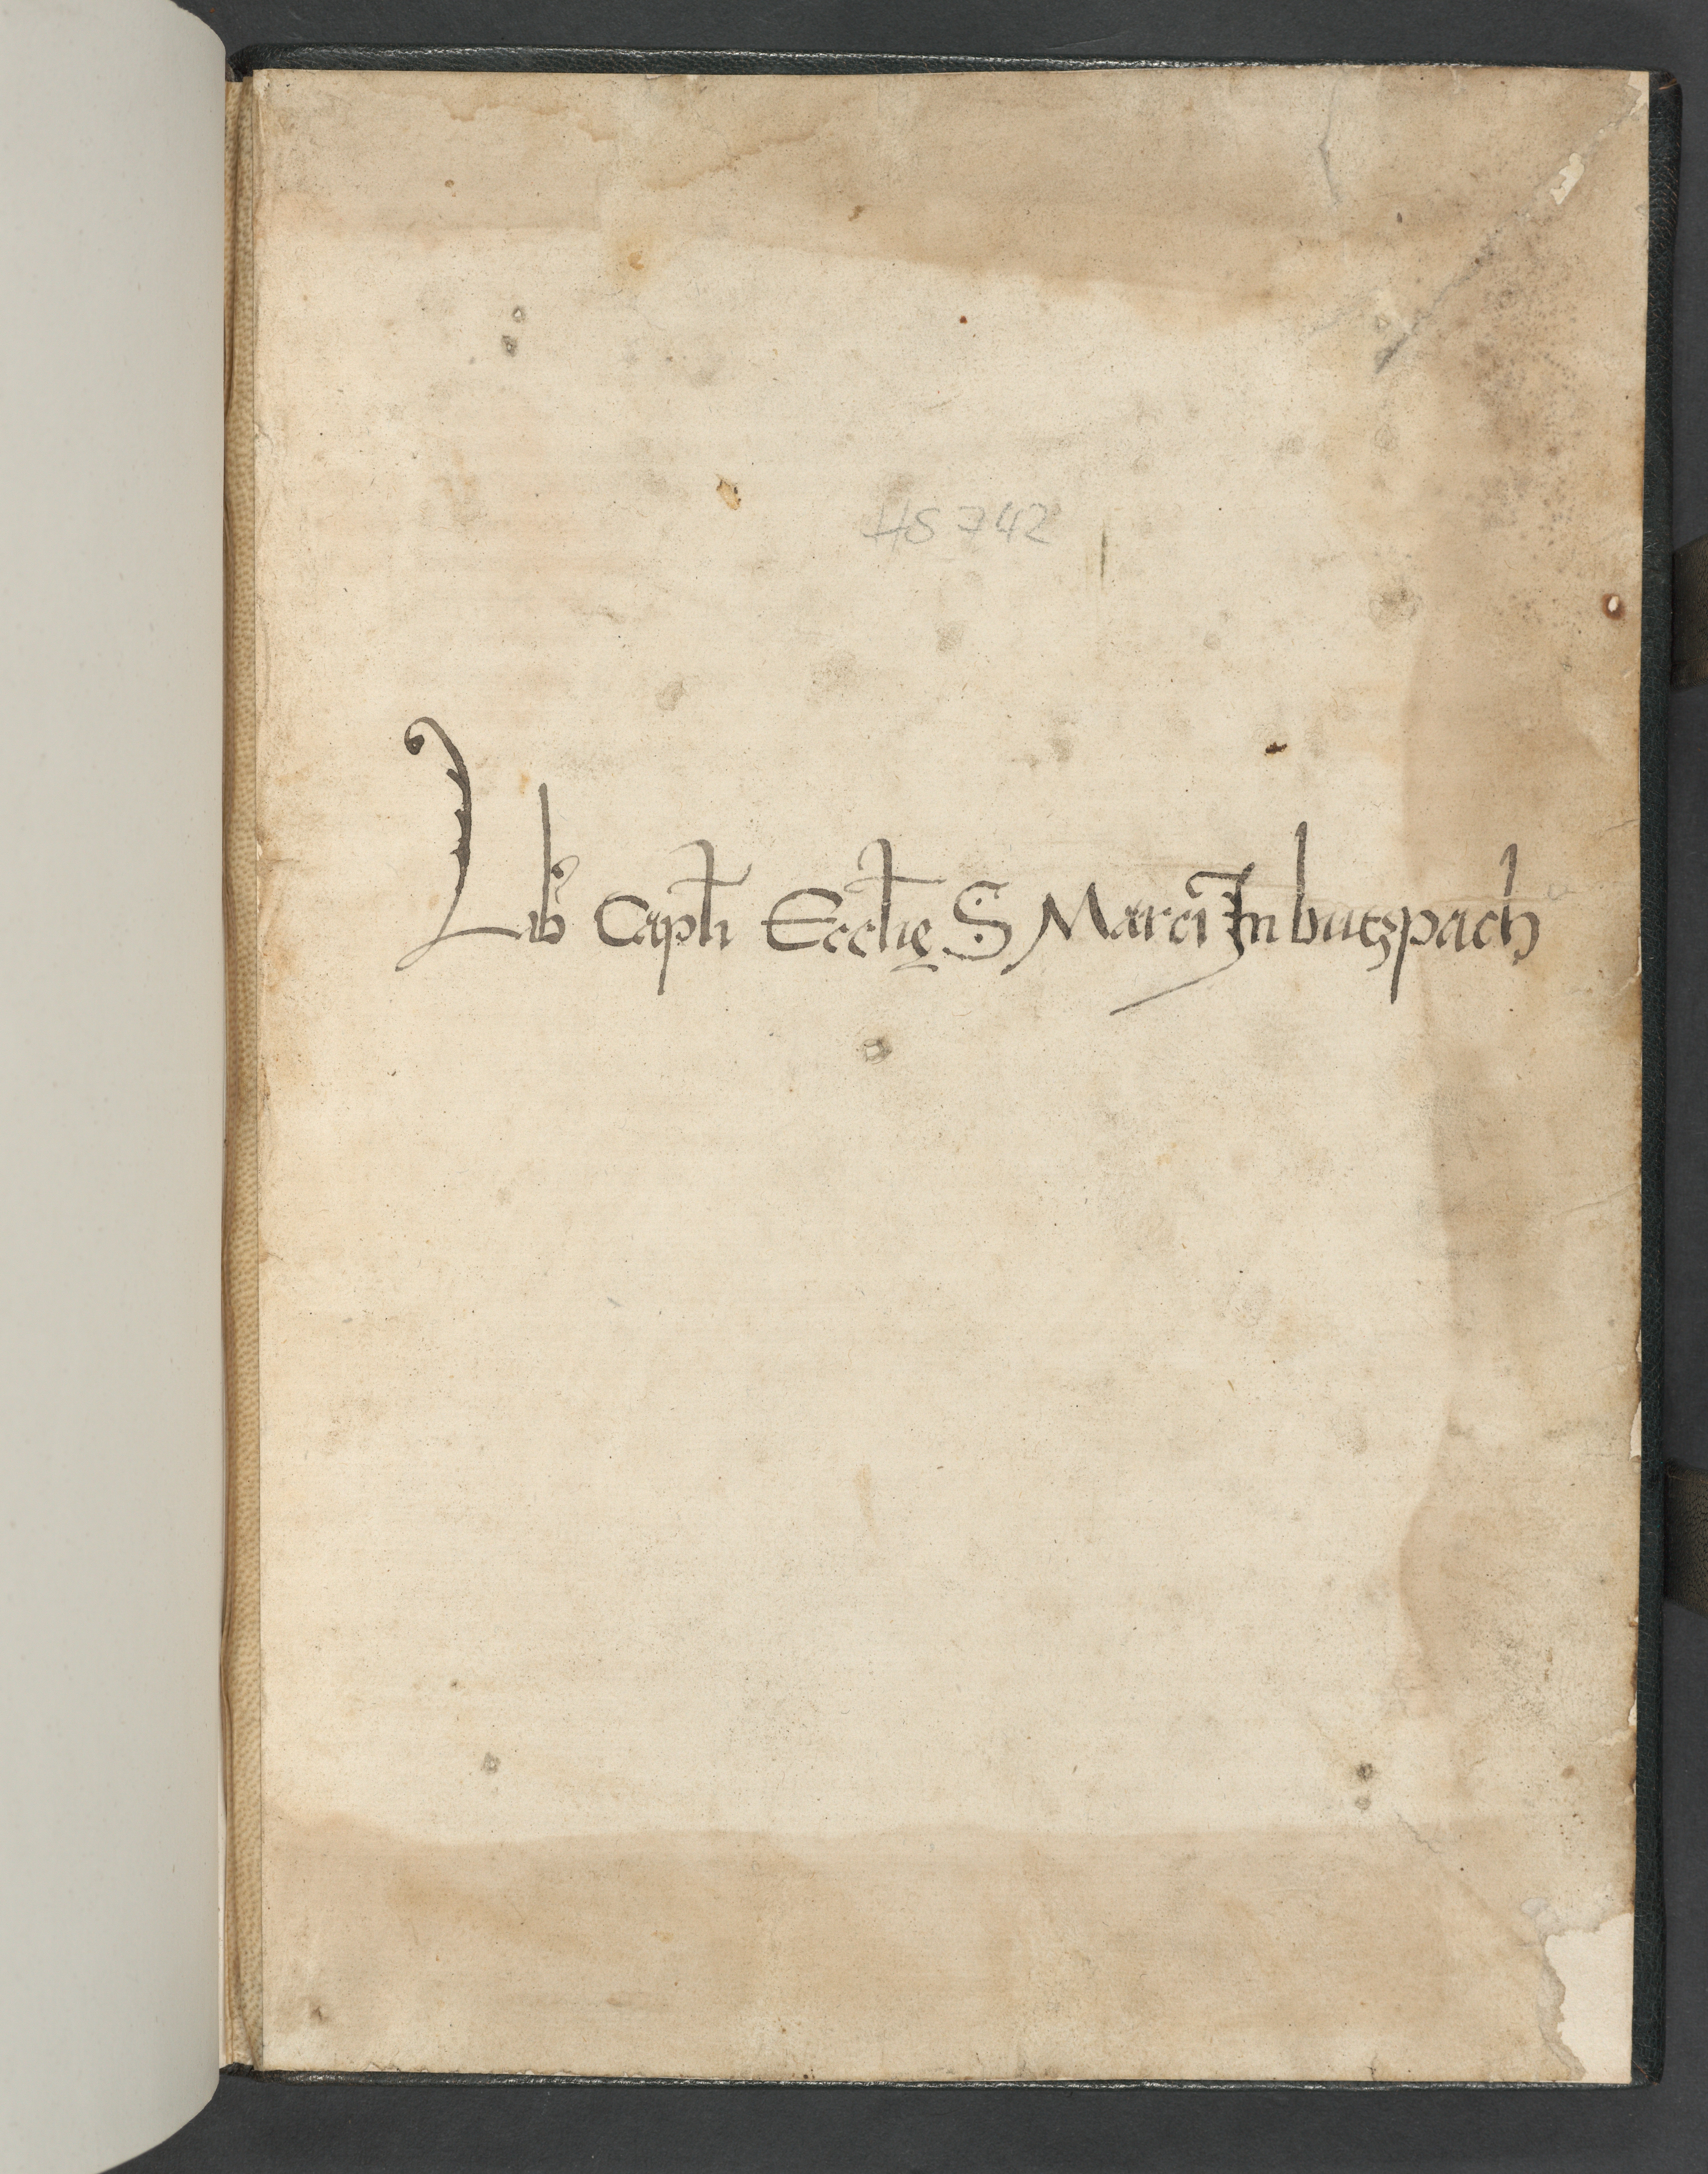 HS 742
Lib᷒ Capłi Eccłię S Marci In butzpach